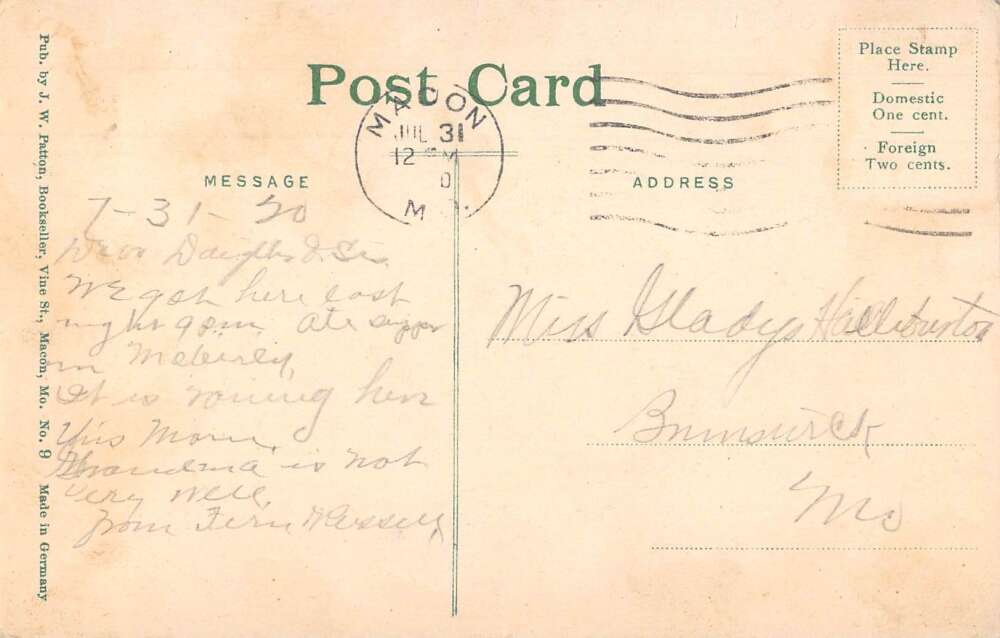 Post Card
Place Stamp
Here.
Domestic
One cent.
Foreign
Two cents.
MACON
JUL 31
12 M
MO.
MESSAGE
ADDRESS
7-31-20
Dear Daughter & Sis
We got here last
night 9 pm, ate supper
in Moberly,
It is raining here
this Morn.
Grandma is not
very well,
from Fern & Russell,
Miss Gladys Halliburton
Brunswick
Mo
Pub. by J. W. Patton, Bookseller, Vine St., Macon, Mo. No. 9 Made in Germany